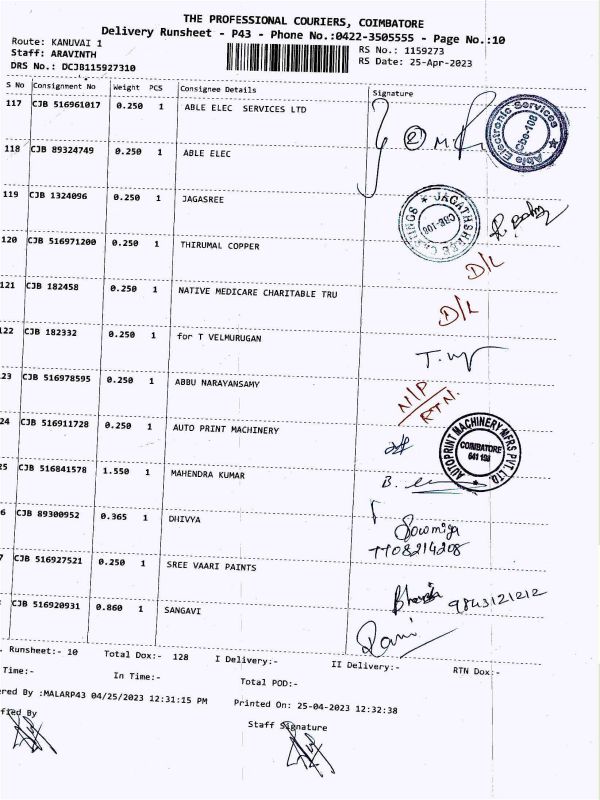 THE PROFESSIONAL COURIERS, COIMBATORE
Delivery Runsheet - P43 - Phone No.:0422-3505555 - Page No.:10
Route: KANUVAI 1
Staff: ARAVINTH
DRS No.: DCJB115927310
RS No.: 1159273
RS Date: 25-Apr-2023
S No Consignment No Weight PCS Consignee Details Signature
117 CJB 516961017 0.250 1 ABLE ELEC SERVICES LTD
2
Able Electronic Services
Cbe-108
118 CJB 89324749 0.250 1 ABLE ELEC
119 CJB 1324096 0.250 1 JAGASREE
JAGATHSHREE CASTINGS
CBE-108
120 CJB 516971200 0.250 1 THIRUMAL COPPER
D/L
121 CJB 182458 0.250 1 NATIVE MEDICARE CHARITABLE TRU
D/L
122 CJB 182332 0.250 1 for T VELMURUGAN
23 CJB 516978595 0.250 1 ABBU NARAYANSAMY
N/P
RTN.
24 CJB 516911728 0.250 1 AUTO PRINT MACHINERY
AUTOPRINT MACHINERY MFRS PVT. LTD.
COIMBATORE
641 108
25 CJB 516841578 1.550 1 MAHENDRA KUMAR
B.
6 CJB 89300952 0.365 1 DHIVYA
Sowmiya
7708214208
7 CJB 516927521 0.250 1 SREE VAARI PAINTS
9843121212
CJB 516920931 0.860 1 SANGAVI
Rani
. Runsheet:- 10 Total Dox:- 128 I Delivery:- II Delivery:- RTN Dox:-
Time:- In Time:- Total POD:-
ered By :MALARP43 04/25/2023 12:31:15 PM Printed On: 25-04-2023 12:32:38
ified By Staff Signature